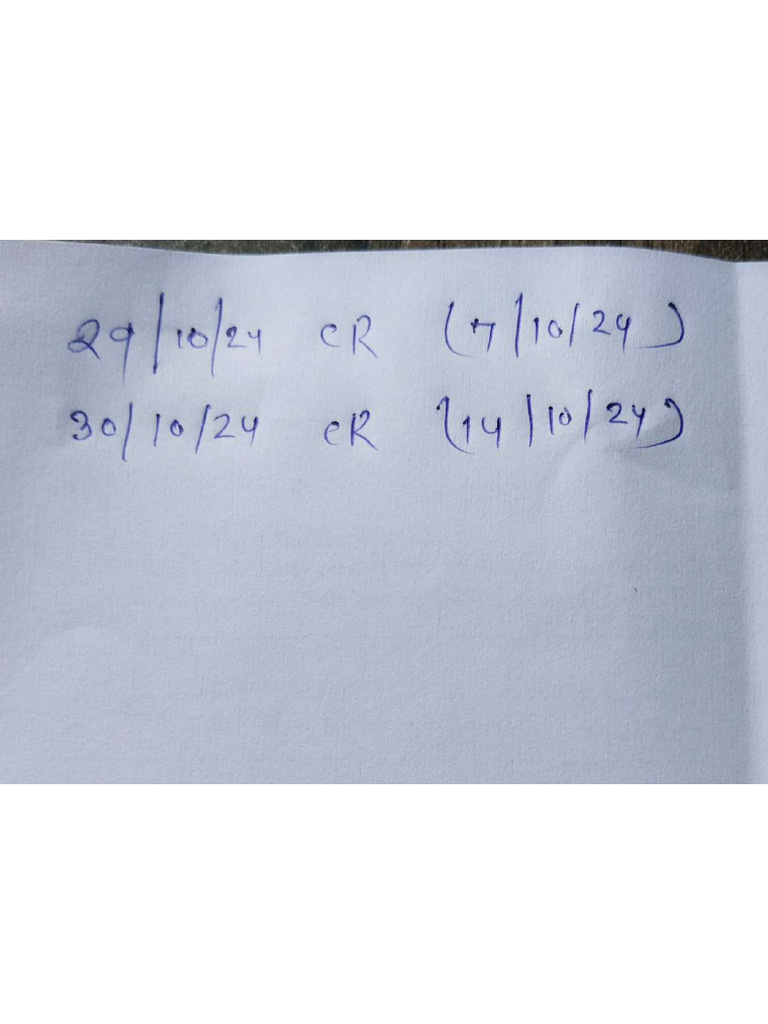 29/10/24 CR (7/10/24)
30/10/24 CR (14/10/24)